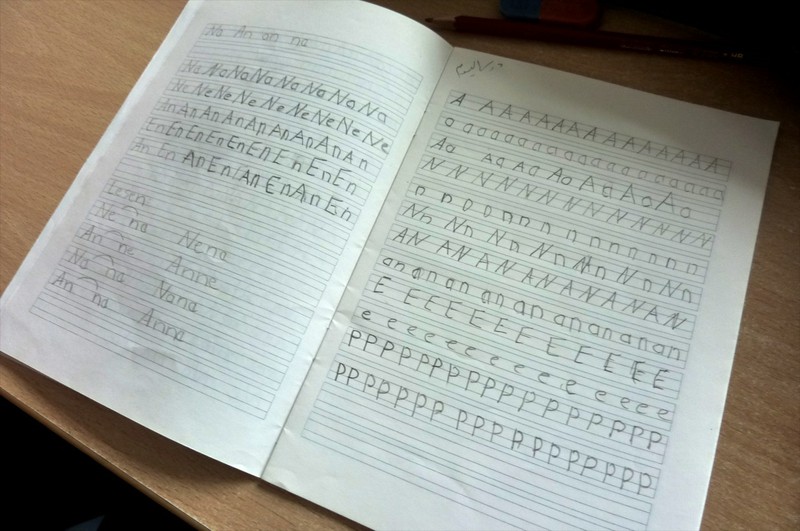 Na An an na
Na Na Na Na Na Na Na Na
Ne Ne Ne Ne Ne Ne Ne Ne Ne
An An An An An An An An
En En En En En En En En
An En An En An En An En
Lesen:
Ne na Nena
An ne Anne
Na na Nana
An na Anna
A A A A A A A A A A A A A A
a a a a a a a a a a a a a a a a a a a
Aa Aa Aa Aa Aa Aa Aa
N N N N N N N N N N N N N N N
n n n n n n n n n n n n n n
Nn Nn Nn Nn Nn Nn Nn
AN AN AN AN AN AN AN AN
an an an an an an an an an an
E E E E E E E E E E E E E
e e e e e e e e e e e e e
P P P P P P P P P P P P P P P P P P P P
P P P P P P P P P P P P P P P P P P P P